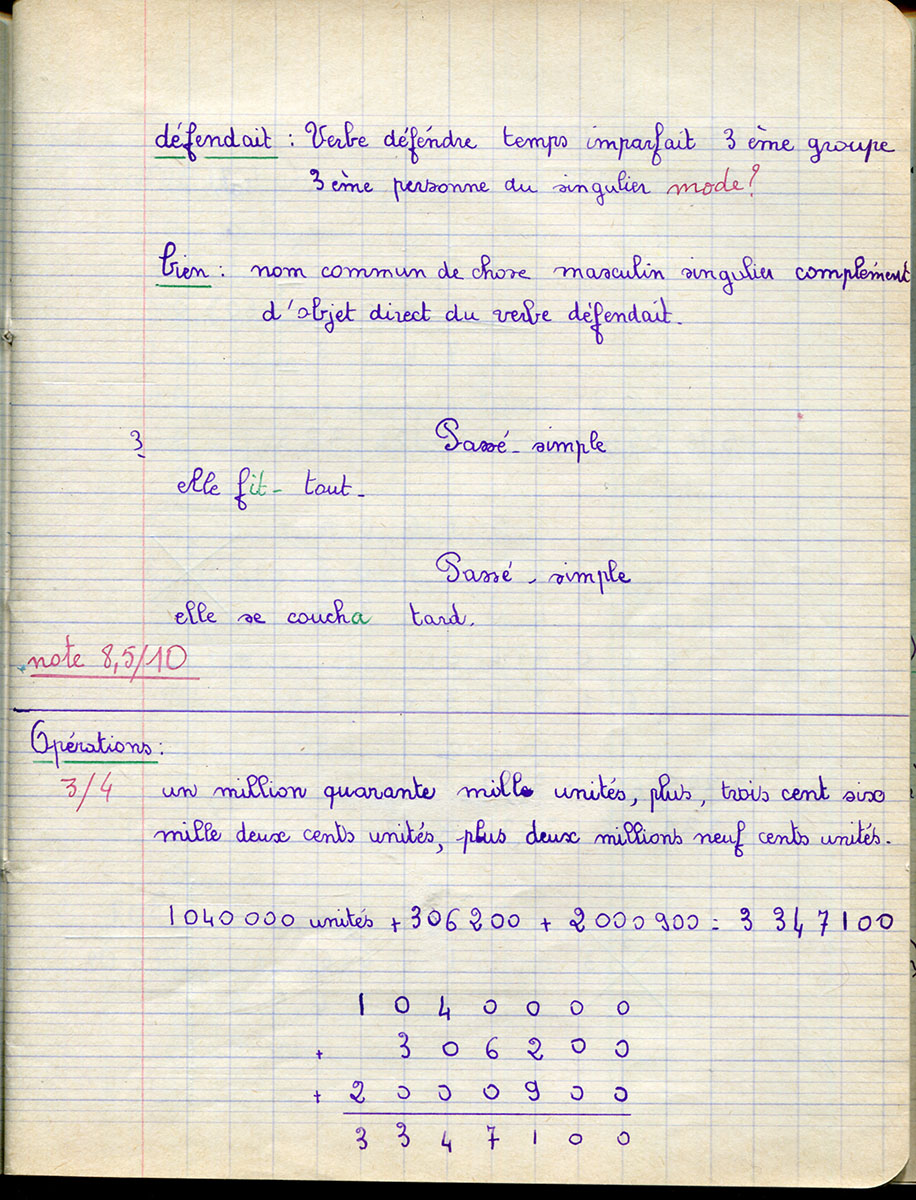 défendait : Verbe défendre temps imparfait 3 ème groupe
3 ème personne du singulier mode?
bien : nom commun de chose masculin singulier complément
d'objet direct du verbe défendait.
3 Passé - simple
elle fit - tout -
Passé - simple
elle se coucha tard.
note 8,5/10
Opérations :
3/4 un million quarante mille unités, plus, trois cent six
mille deux cents unités, plus deux millions neuf cents unités.
1040 000 unités + 306 200 + 2 000 900 = 3 347 100
1 0 4 0 0 0 0
+ 3 0 6 2 0 0
+ 2 0 0 0 9 0 0
3 3 4 7 1 0 0